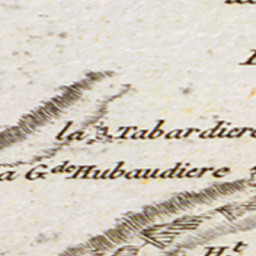 la Tabardiere
la G.de Hubaudiere
H.t